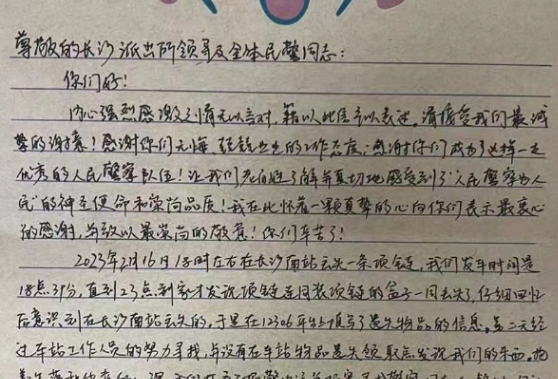 尊敬的长沙派出所领导及全体民警同志:
你们好!
内心强烈感激之情无以言对,籍以此信予以表达,请接受我们最诚
挚的谢意!感谢你们无悔、兢兢业业的工作态度;感谢你们成为了这样一支
优秀的人民警察队伍!让我们充分地了解并真切地感受到了“人民警察为人
民”的神圣使命和崇尚品质!我在此怀着一颗真挚的心向你们表示最衷心
的感谢,并致以最崇高的敬意!你们辛苦了!
2023年2月16日18时左右在长沙南站丢失一条项链,我们发车时间是
18点39分,直到23点到家才发现项链连同装项链的盒子一同丢失了,仔细回忆
后意识到在长沙南站丢失的,于是在12306平台上填写了遗失物品的信息。第二天经
过车站工作人员的努力寻找,并没有在车站物品遗失领取点发现我们的东西。抱